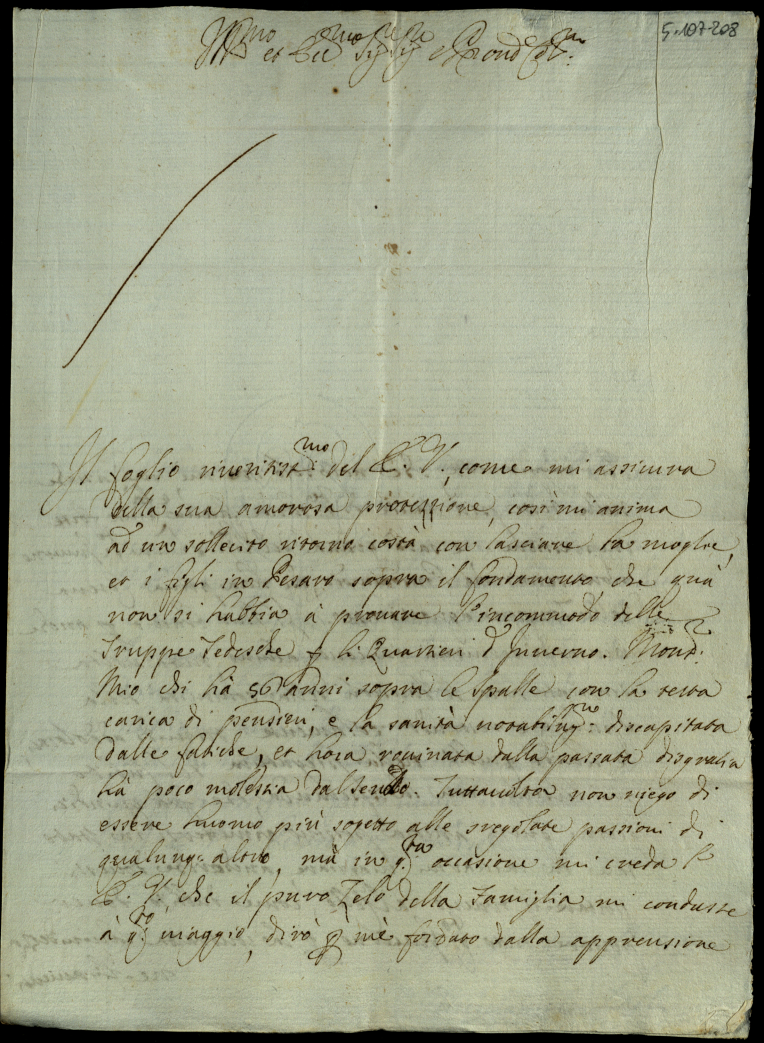 5-107-208
Ill.mo et Ecc.mo Sig.r Sig.r e Pron Col.mo
Il foglio riveritiss.mo del E. V., come mi assicura
della sua amorosa protezzione, così mi anima
ad un sollecito ritorno costà con lasciare la moglie,
et i figli in Pesaro sopra il fondamento, che quà
non si habbia à provare l'incommodo delle
Truppe Tedesche p li Quartieri d'Inverno.
Mio chi hà 56 anni sopra le spalle con la testa
carica di pensieri, e la sanità notabilm.te discapitata
dalle fatiche, et hora rovinata dalla passata disgratia
hà poco molestia dal senso. Tuttavolta non niego di
essere huomo più sogetto alle sregolate passioni di
qualunq; altro, mà in q.ta occasione mi creda l'
E. V. che il puro Zelo della Famiglia mi condusse
à q.to viaggio, dirò p mè forzato dalla apprensione